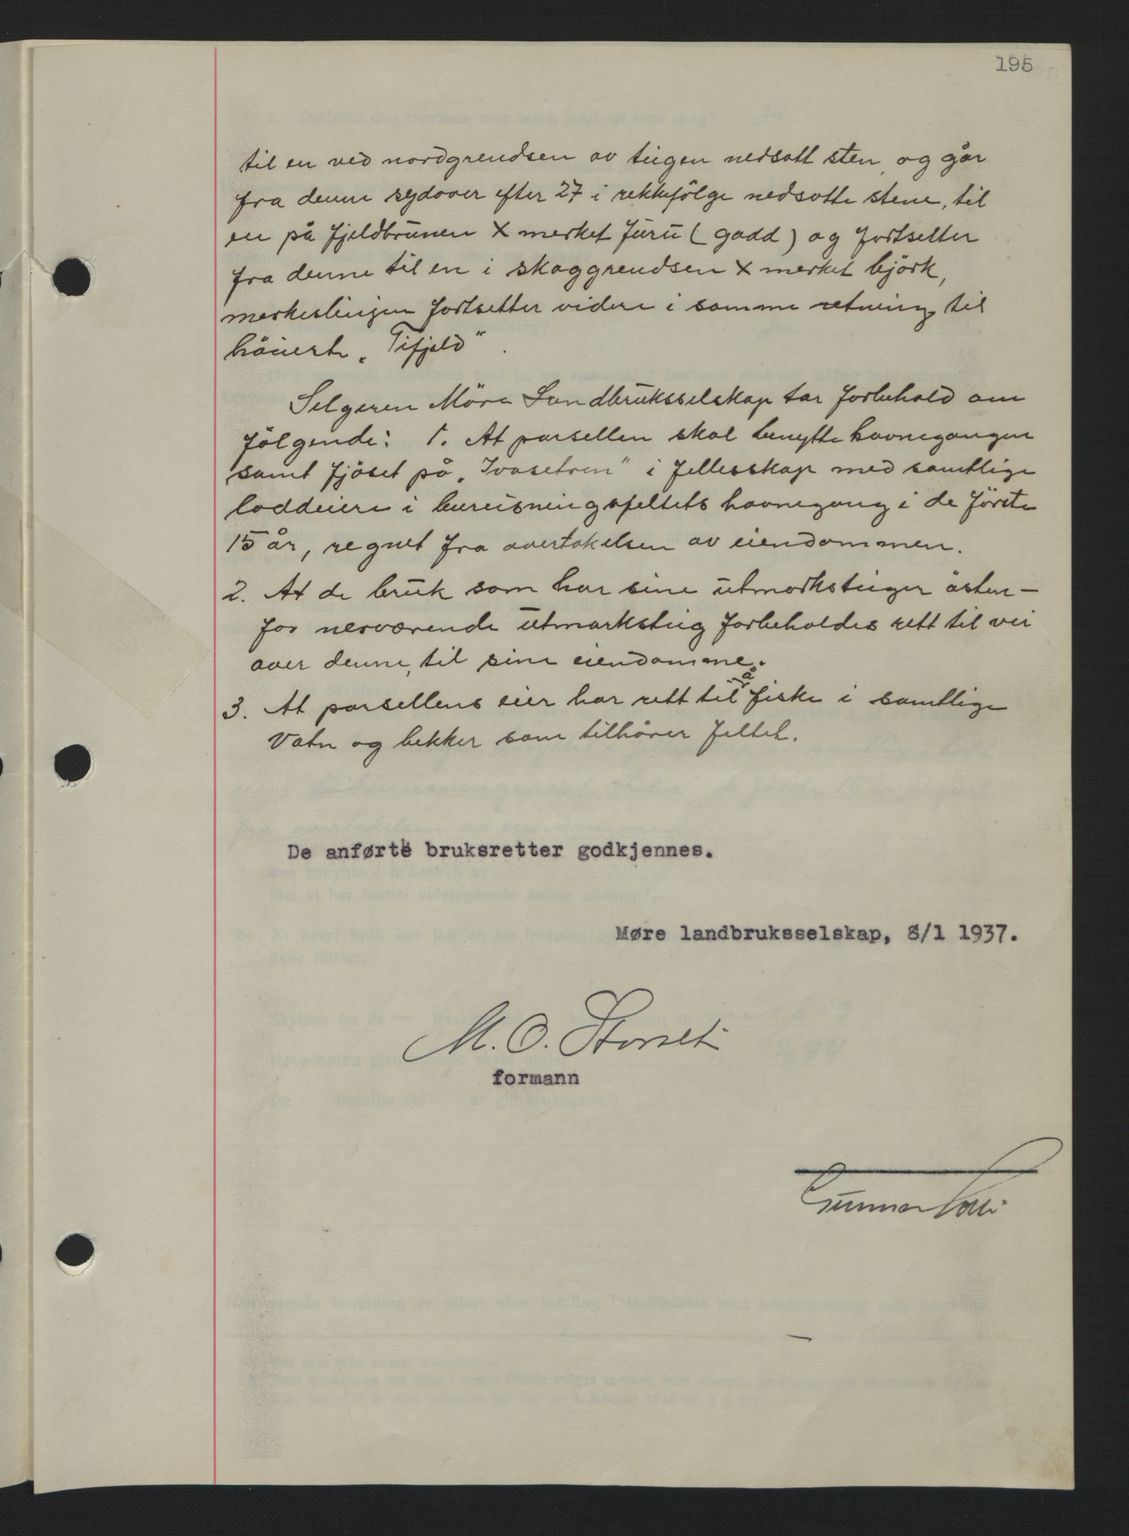 195
til en ved nordgrendsen av teigen nedsatt sten, og går
fra denne sydover efter 27 i rekkefölge nedsatte stene, til
en på fjeldbrunen X merket furu (gadd) og fortsetter
fra denne til en i skoggrendsen X merket björk,
merkeslinjen fortsetter videre i samme retning til
höieste „Tifjeld".
Selgeren Möre Landbruksselskap tar forbehold om
fölgende: 1. At parsellen skal benytte havnegangen
samt fjöset på „Ivasetren" i fellesskap med samtlige
loddeiere i bureisningsfeltets havnegang i de förste
15 år, regnet fra overtakelsen av eiendommen.
2. At de bruk som har sine utmarksteiger östen-
for nærværende utmarksteig forbeholdes rett til vei
over denne, til sine eiendomme.
3. At parsellens eier har rett til å fiske i samtlige
Vatn og bekker som tilhörer feltet.
De anførte bruksretter godkjennes.
Møre landbruksselskap, 8/1 1937.
M. O. Storset
formann
Gunnar